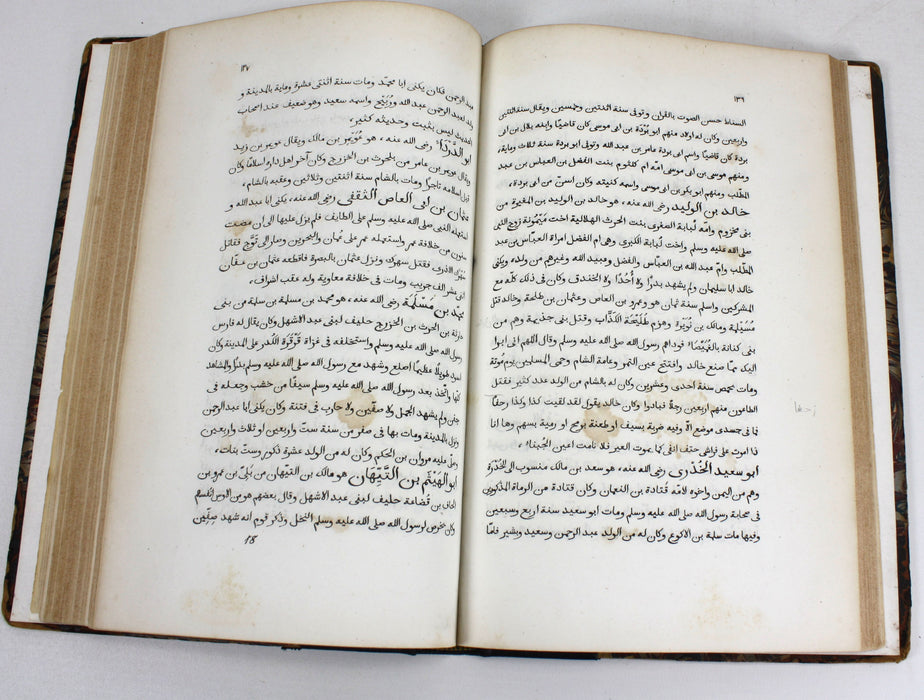 ١٣٦
السناط حسن الصوت بالقران وتوفى سنة اثنتين وخمسين ويقال سنة اثنتين
واربعين وكان له اولاد منهم ابو بُرْدَة بن ابى موسى كان قاضيًا وابنه بلال بن ابى
بردة كان قاضيًا واسم ابى بردة عامر بن عبد الله وتولى ابو بردة سنة ثلاث وماية،
ومنهم موسى بن ابى موسى امّه ام كلثوم بنت الفضل بن العباس بن عبد
المطّلب ومنهم ابو بكر بن ابى موسى واسمه كنيته وكان اسنّ من ابى بردة،
خالد بن الوليد رضى الله عنه، هو خالد بن الوليد بن المغيرة من
بنى مخزوم وامّه لُبابة الصغرى بنت الحرث الهلالية اخت مَيْمُونَة زوج النبى
صلى الله عليه وسلم واخت لبابة الكبرى وهى ام الفضل امراة العبّاس بن عبد
المطّلب وامّ عبد الله بن العبّاس والفضل وعبيد الله وغيرهم من ولده، ويكنى
خالد ابا سليمان ولم يشهد بدرًا ولا أُحُدًا ولا الخندق وكان فى ذلك كلّه مع
المشركين واسلم سنة ثمان هو وعمرو بن العاص وعثمان بن طلحة وخالد قتل
مُسَيْلِمة ومالك بن نُوَيْرَة وهزم طُلَيْحَة الكَذّاب وقتل بنى جذيمة وهم من
بنى كنانة بالغُمَيْصَاء فوداهم رسول الله صلى الله عليه وسلم وقال اللهم انى ابرا
اليك ممّا صنع خالد وافتتح عين التمر وعامة الشام وحمى المسلمين يوم مُوتة
ومات بحمص سنة احدى وعشرين وكان له بالشام من الولد عدد كثير فقتل
الطاعون منهم اربعين رجلًا فبادوا وكان خالد يقول لقد لقيت كذا وكذا زحفًا
فما فى جسدى موضع الّا وفيه ضربة بسيف او طعنة برمح او رمية بسهم وها انا
ذا اموت على فراشى حتف انفى كما يموت العير فلا نامت اعين الجُبناء،
ابو سعيد الخُدْرى رضى الله عنه، هو سعد بن مالك منسوب الى الخُدْرَة
وهم من اليمن واخوه لامّه قَتادة بن النعمان وكان قتادة من الرماة المذكورين
فى صحابة رسول الله صلى الله عليه وسلم ومات ابو سعيد سنة اربع وسبعين
وفيها مات سلمة بن الاكوع وكان له من الولد عبد الرحمن وسعيد وبشير فامّا
زحفا
١٣٧
عبد الرحمن فكان يكنى ابا محمّد ومات سنة اثنتى عشرة وماية بالمدينة و
ولد لعبد الرحمن عبد الله ورُبَيْح واسمه سعيد وهو ضعيف عند اصحاب
الحديث ليس بثبت وحديثه كثير،
ابو الدَّرْدَاء رضى الله عنه، هو عُوَيْمِر بن مالك ويقال عويمر بن زيد
ويقال عويمر بن عامر من بلحرث بن الخزرج وكان آخر اهل داره اسلامًا وكان
قبل اسلامه تاجرًا ومات بالشام سنة اثنتين وثلاثين وعقبه بالشام،
عثمان بن ابى العاص الثقفى رضى الله عنه، يكنى ابا عبد الله و
استعمله النبى صلى الله عليه وسلم على الطايف فلم يزل عليها الى ان مضت
سنون من خلافة عمر واستعمله عمر على عُمان والبحرين وصار الى تَوَّج فقاتل
شَهْرَك الاذرى فقتل سهرك ونزل عثمان بالبصرة فاقطعه عثمان بن عفّان
اثنى عشر الف جريب ومات فى خلافة معاوية وله عقب اشراف،
محمّد بن مَسْلَمَة رضى الله عنه، هو محمد بن مسلمة بن سلمة من بنى
حارثة بن الحرث بن الخزرج حليف لبنى عبد الاشهل وكان يقال له فارس
رسول الله صلى الله عليه وسلم واستخلفه فى غزاة قَرْقَرَة الكُدْر على المدينة وكان
اسود طويلًا عظيمًا اصلع وشهد مع رسول الله صلى الله عليه وسلم بدرًا والمشاهد
كلّها واتّخذ بعد رسول الله صلى الله عليه وسلم سيفًا من خشب وجعله فى
جفن ولم يشهد الجمل ولا صفّين ولا حارب فى فتنة وكان يكنى ابا عبد الرحمن
ونزل بالمدينة ومات بها فى صفر من سنة ست واربعين او ثلاث واربعين
وصلّى عليه مروان بن الحكم وكان له من الولد عشرة ذكور وست بنات،
ابو الهَيْثَم بن التَّيِّهان هو مالك بن التيّهان من بَلِىّ بن عمرو بن
الحاف بن قُضاعة حليف لبنى عبد الاشهل وقال بعضهم هو من الاوس انفسهم
وكان يخرص لرسول الله صلى الله عليه وسلم النخل وذكر قوم انه شهد صِفّين
18